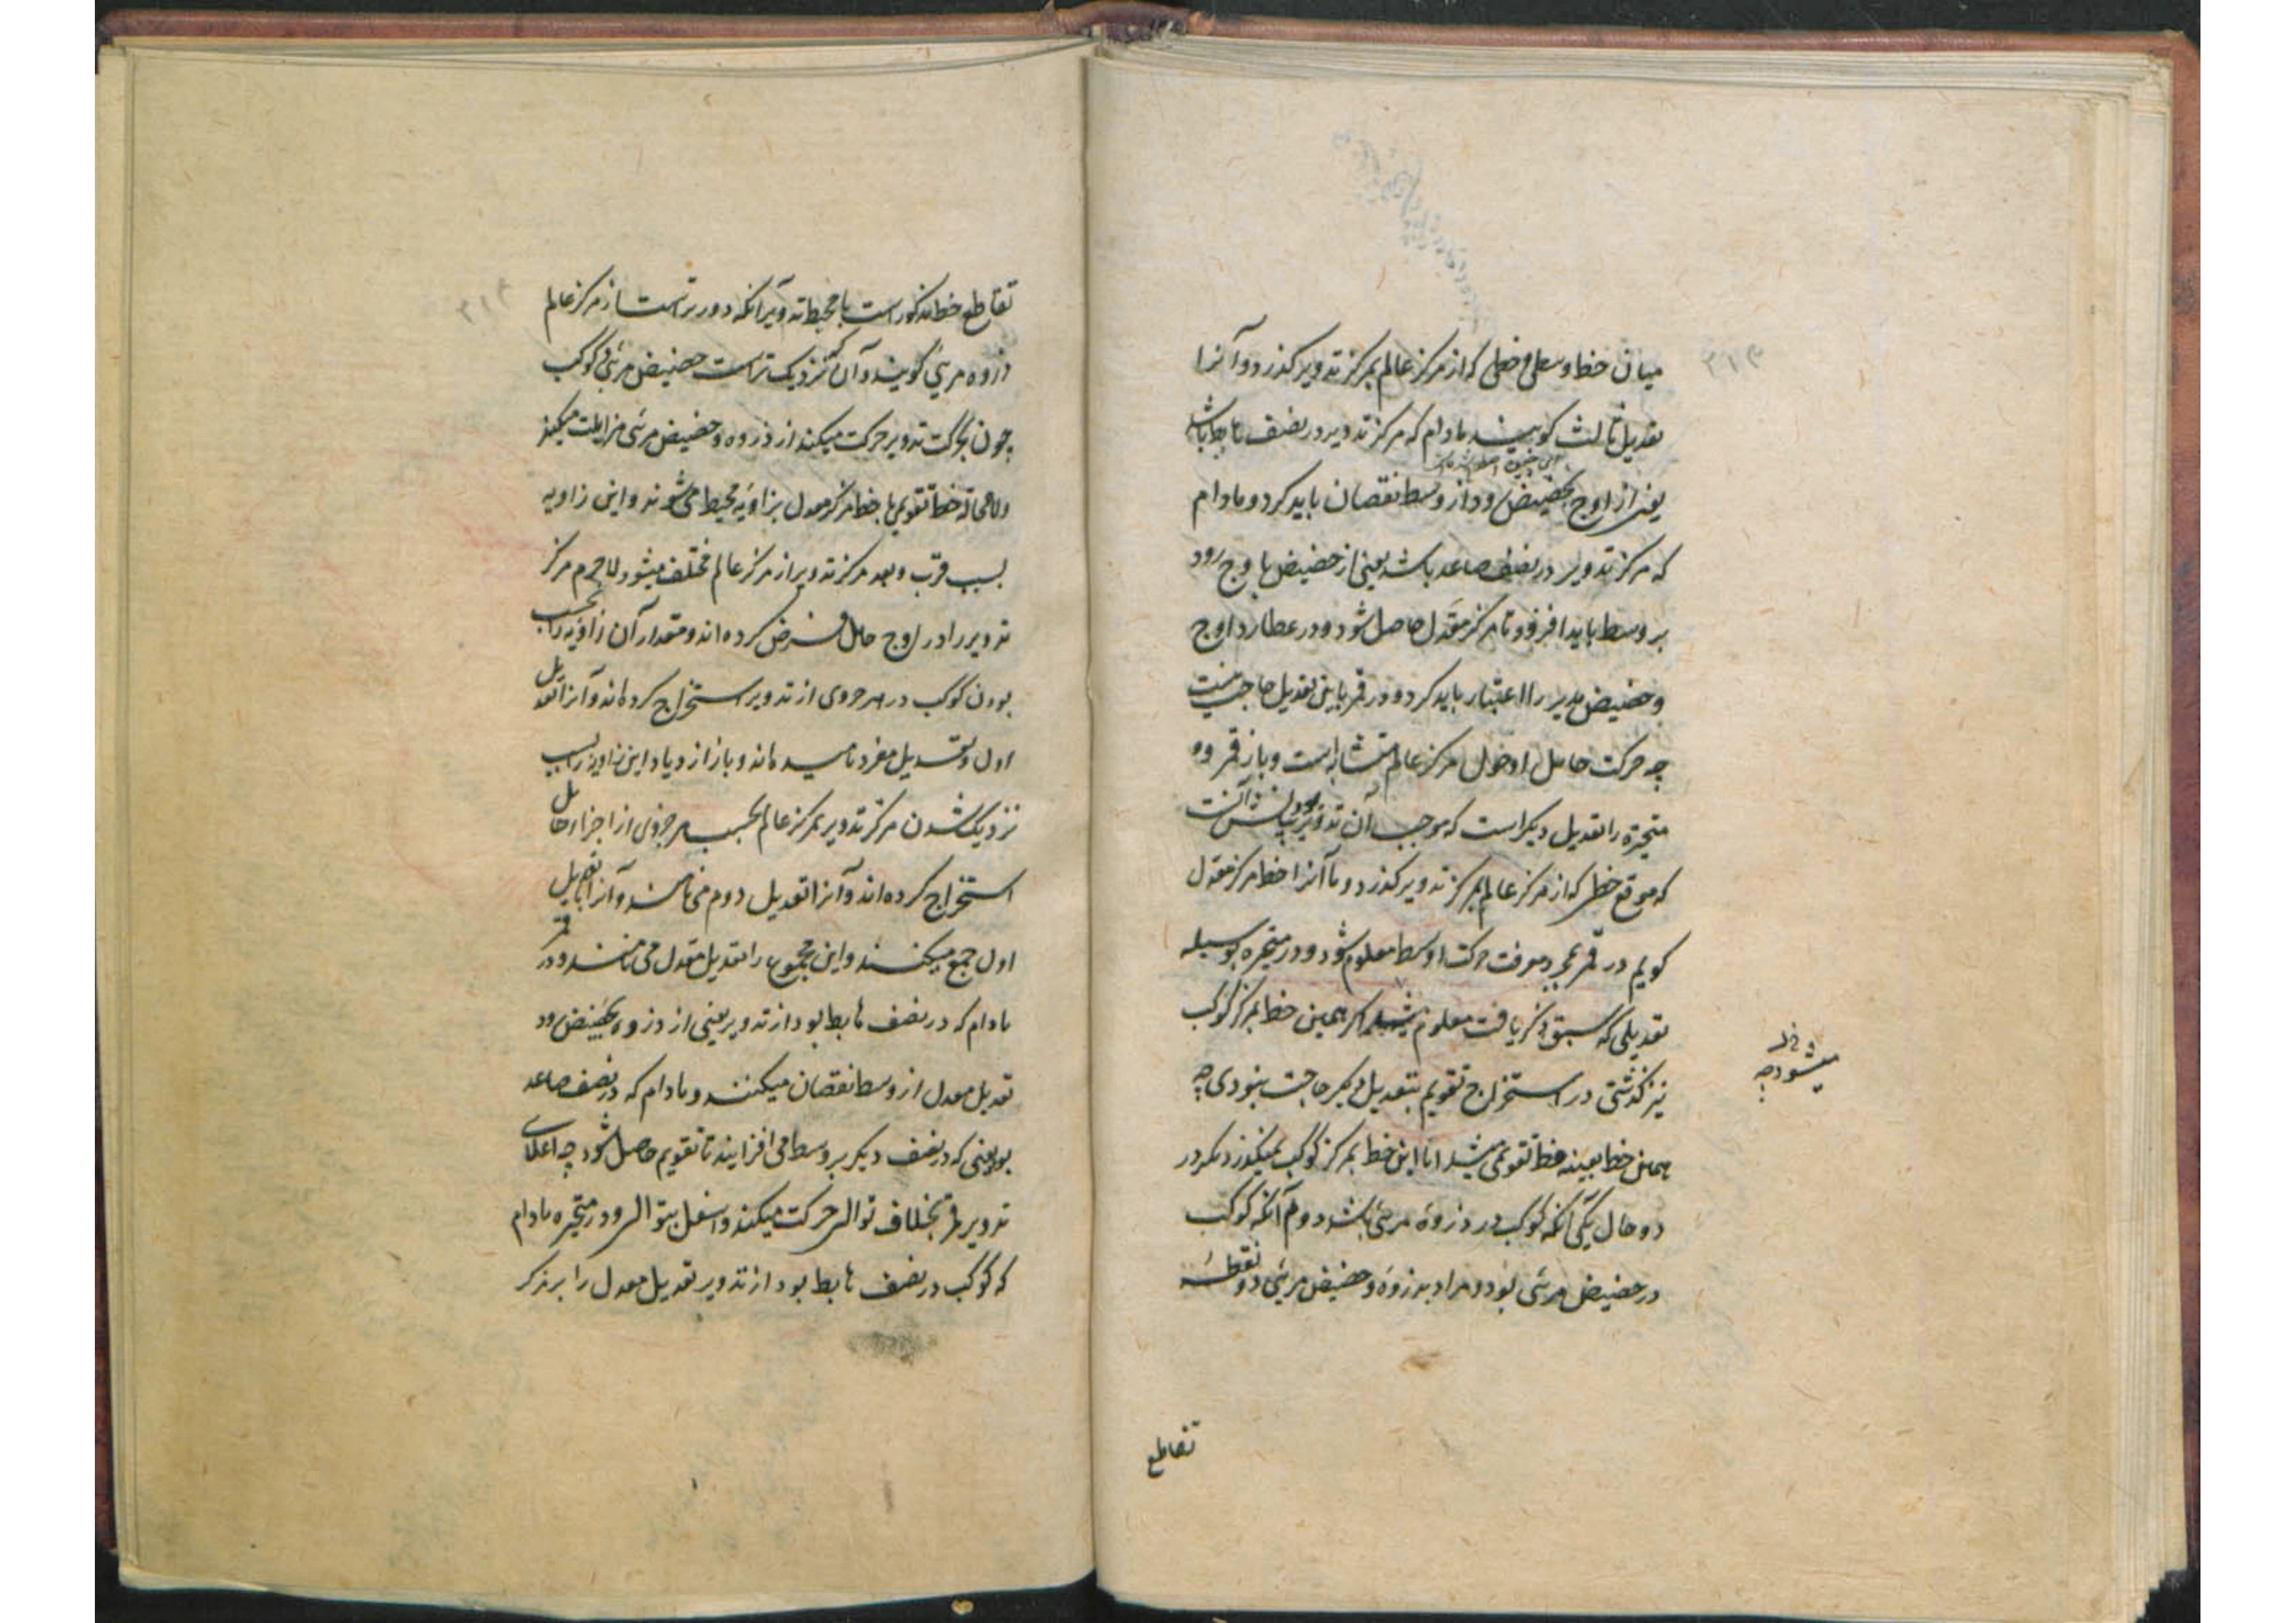 میان خط وسطی و خطی که از مرکز عالم بمرکز تدویر گذرد و آنرا
تعدیل ثالث گویند مادام که مرکز تدویر در نصف هابط باشد
یعنی از اوج بحضیض رود از وسط نقصان باید کرد و مادام
که مرکز تدویر در نصف صاعد باشد یعنی از حضیض باوج رود
بر وسط باید افزود تا مرکز معدل حاصل شود و در عطارد اوج
و حضیض مدیر را اعتبار باید کرد و در قمر باین تعدیل حاجت نیست
چه حرکت حامل او حول مرکز عالم متشابه است و باز قمر و
متحیره را تعدیل دیگر است که موجب آن تدویر بود و آنست
که موقع خطی که از مرکز عالم بمرکز تدویر گذرد و ما آنرا خط مرکز معدل
گویم در قمر بمجرد معرفت حرکت اوسط معلوم شود و در متحیره بوسیله
تعدیلی که سبق ذکر یافت معلوم میشود اگر همین خط بمرکز کوکب
نیز گذشتی در استخراج تقویم بتعدیل دیگر حاجت نبودی چه
همان خط بعینه خط تقویمی میشد اما این خط بمرکز کوکب نمیگذرد مگر در
دو حال یکی آنکه کوکب در ذروه مرئی باشد دوم آنکه کوکب
در حضیض مرئی بود و مراد بذروه و حضیض مرئی دو نقطه
میشود چه
تقاطع
تقاطع خط مذکور است با محیط تدویر آنکه دورتر است از مرکز عالم
ذروه مرئی گویند و آن که نزدیک تر است حضیض مرئی و کوکب
چون بحرکت تدویر حرکت میکند از ذروه و حضیض مرئی مزایلت میکند
و لامحاله خط تقویمی با خط مرکز معدل بزاویه محیط می شوند و این زاویه
بسبب قرب و بعد مرکز تدویر از مرکز عالم مختلف میشود لاجرم مرکز
تدویر را در اوج حامل فرض کرده اند و مقدار آن زاویه را بحسب
بودن کوکب در هر جزوی از تدویر استخراج کرده اند و آنرا تعدیل
اول و تعدیل مفرد نامیده اند و باز ازدیاد این زاویه را بسبب
نزدیک شدن مرکز تدویر بمرکز عالم بحسب هر جزوی از اجزاء حامل
استخراج کرده اند و آنرا تعدیل دوم می نامند و آنرا با تعدیل
اول جمع میکنند و این مجموع را تعدیل معدل می نامند و در قمر
مادام که در نصف هابط بود از تدویر یعنی از ذروه بحضیض رود
تعدیل معدل از وسط نقصان میکنند و مادام که در نصف صاعد
بود یعنی که در نصف دیگر بر وسط می افزایند تا تقویم حاصل شود چه اعلای
تدویر قمر بخلاف توالی حرکت میکند و اسفل بتوالی و در متحیره مادام
که کوکب در نصف هابط بود از تدویر تعدیل معدل را بر مرکز